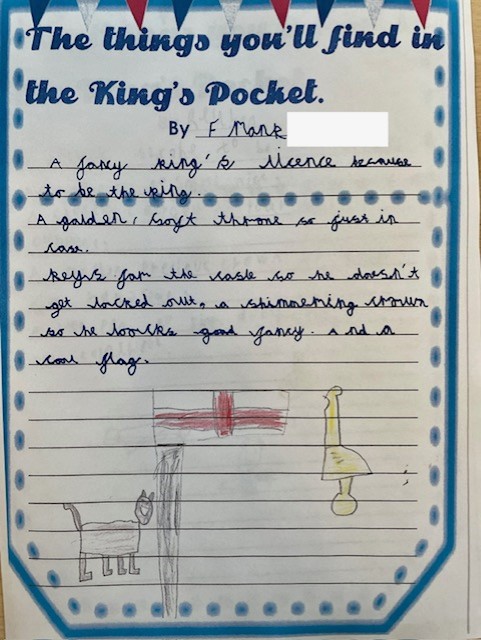 The things you'll find in
the King's Pocket.
By F Mank
A fancy king's licence because
to be the king.
A golden, soft throne so just in
case.
Keys for the casle so he doesn't
get locked out, a shimmering crown
so he loocks good fancy. And a
cool flag.